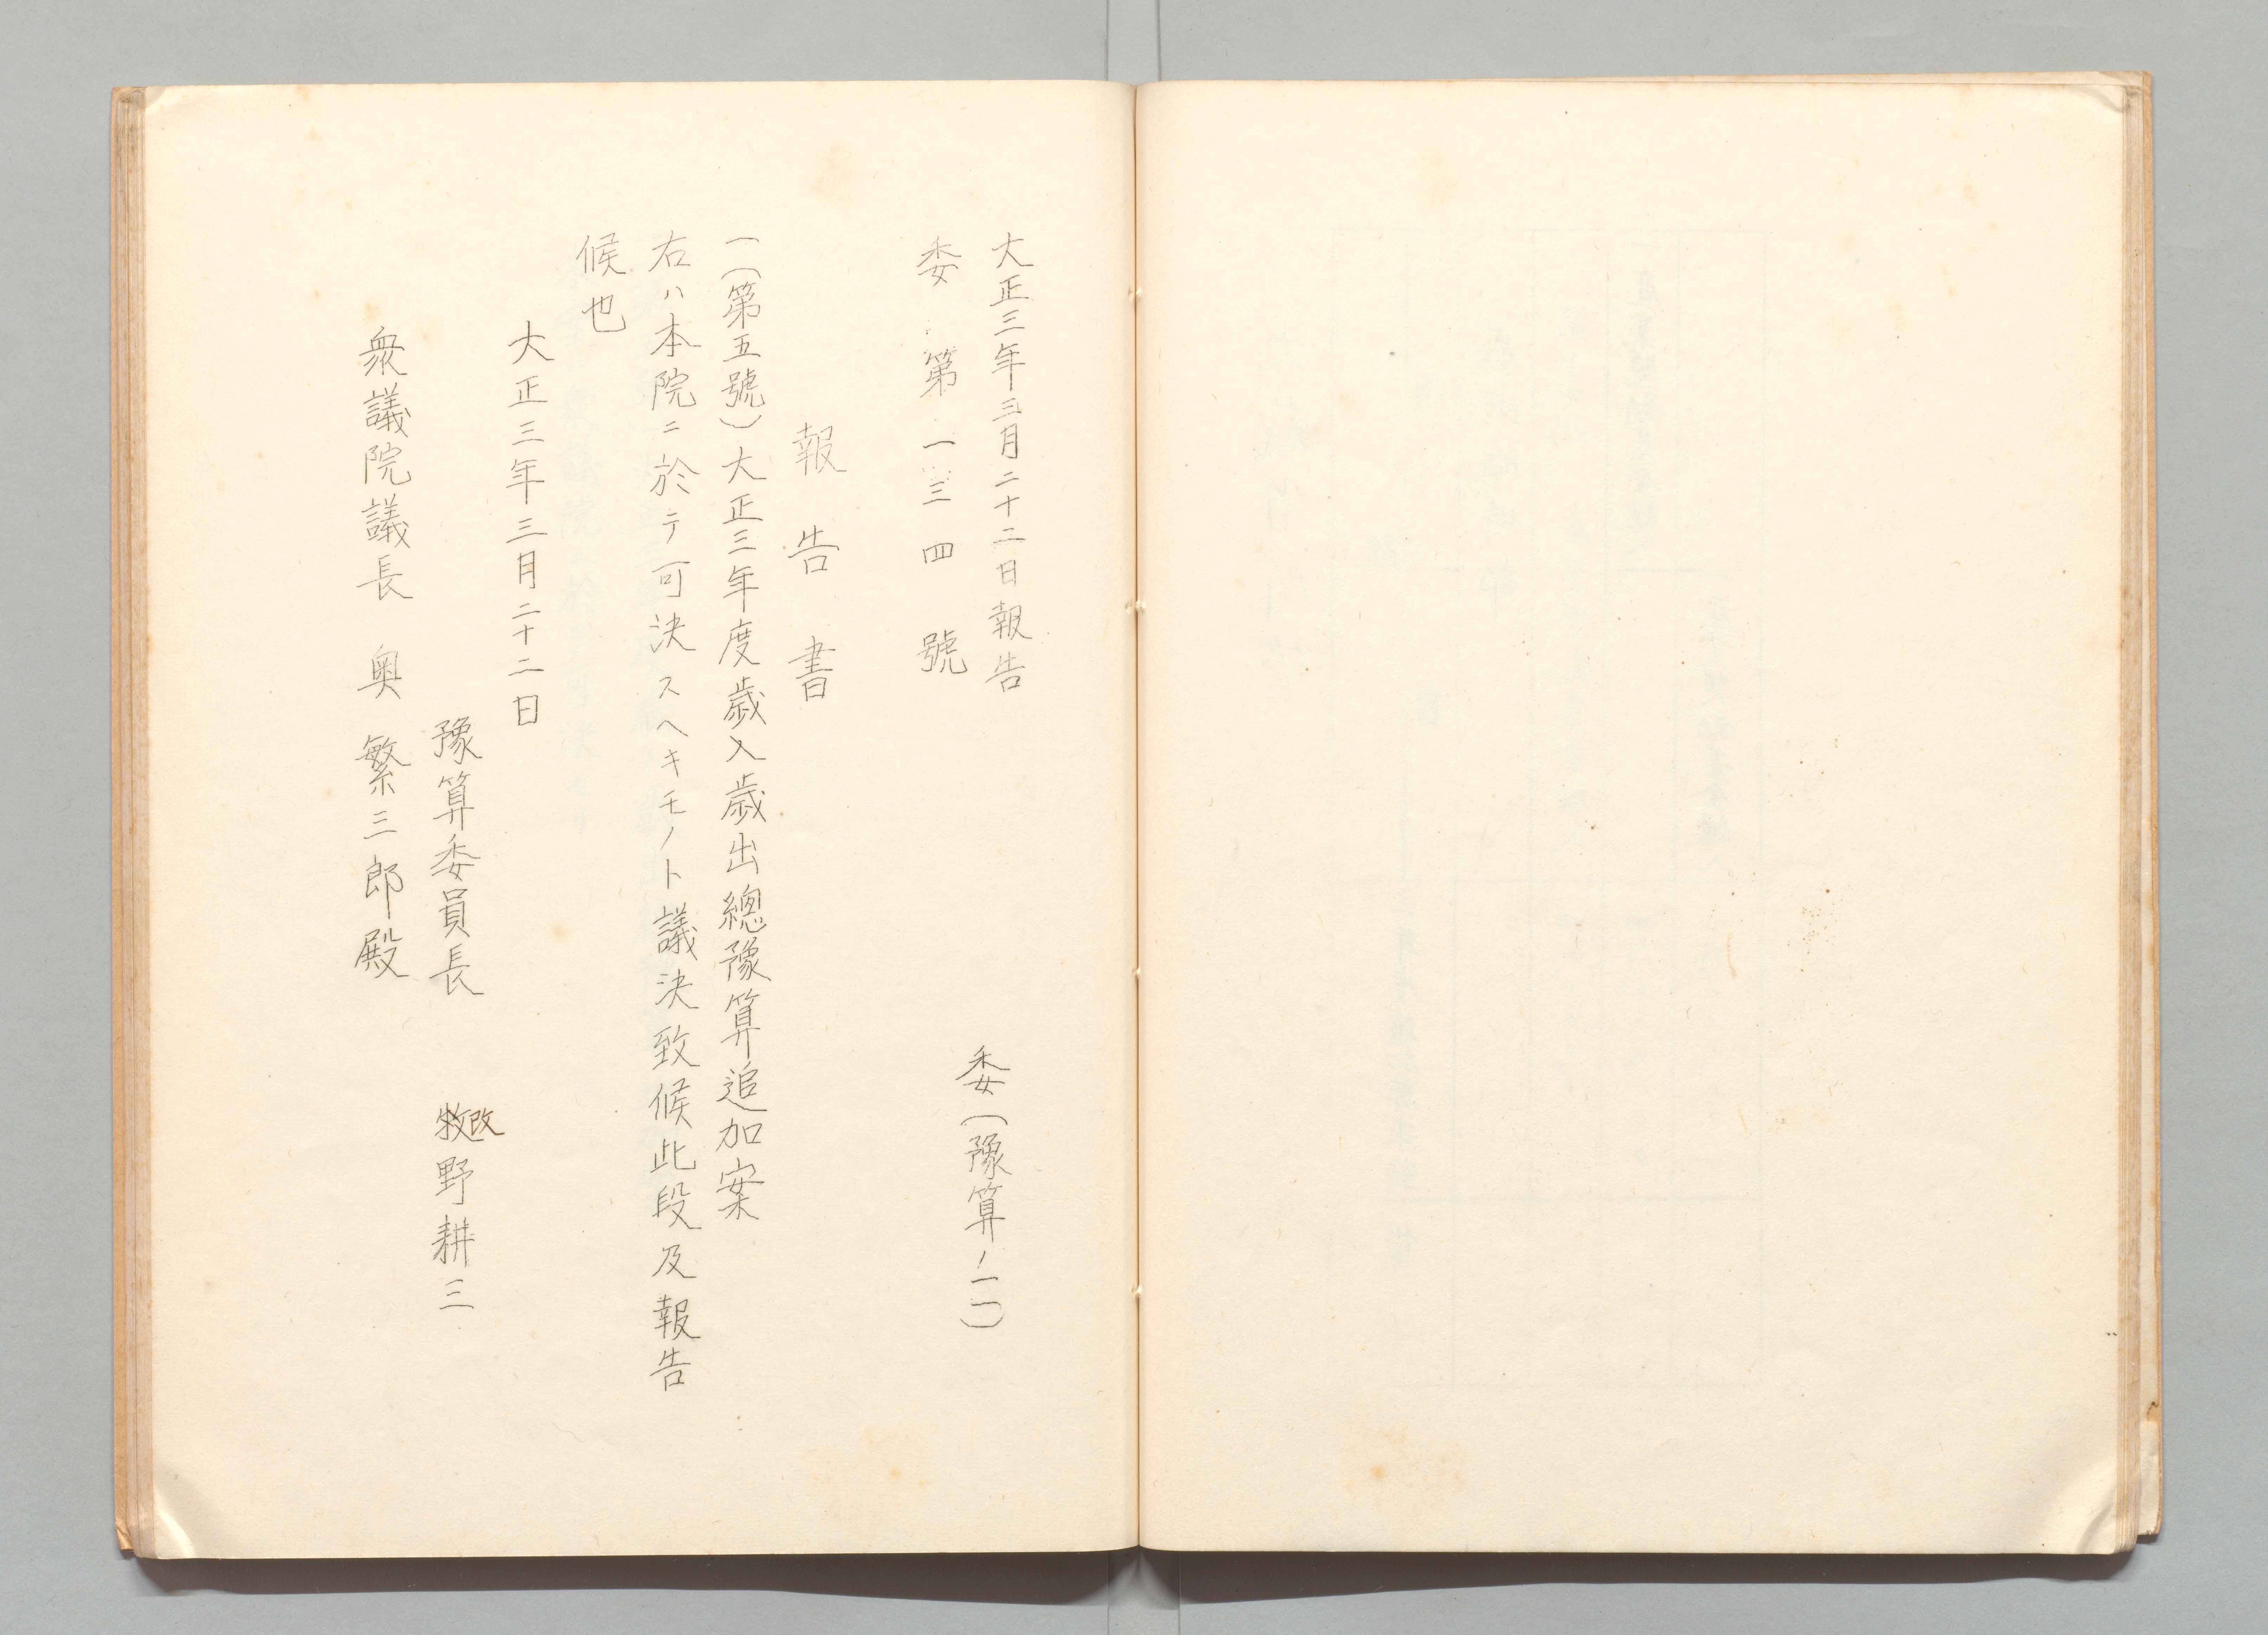 大正三年三月二十二日報告
委(豫算ノ一一)
委第一三四號
報告書
一(第五號)大正三年度歲入歲出總豫算追加案
右ハ本院ニ於テ可決スヘキモノト議決致候此段及報告
候也
大正三年三月二十二日
豫算委員長 改野耕三
衆議院議長 奧繁三郎殿